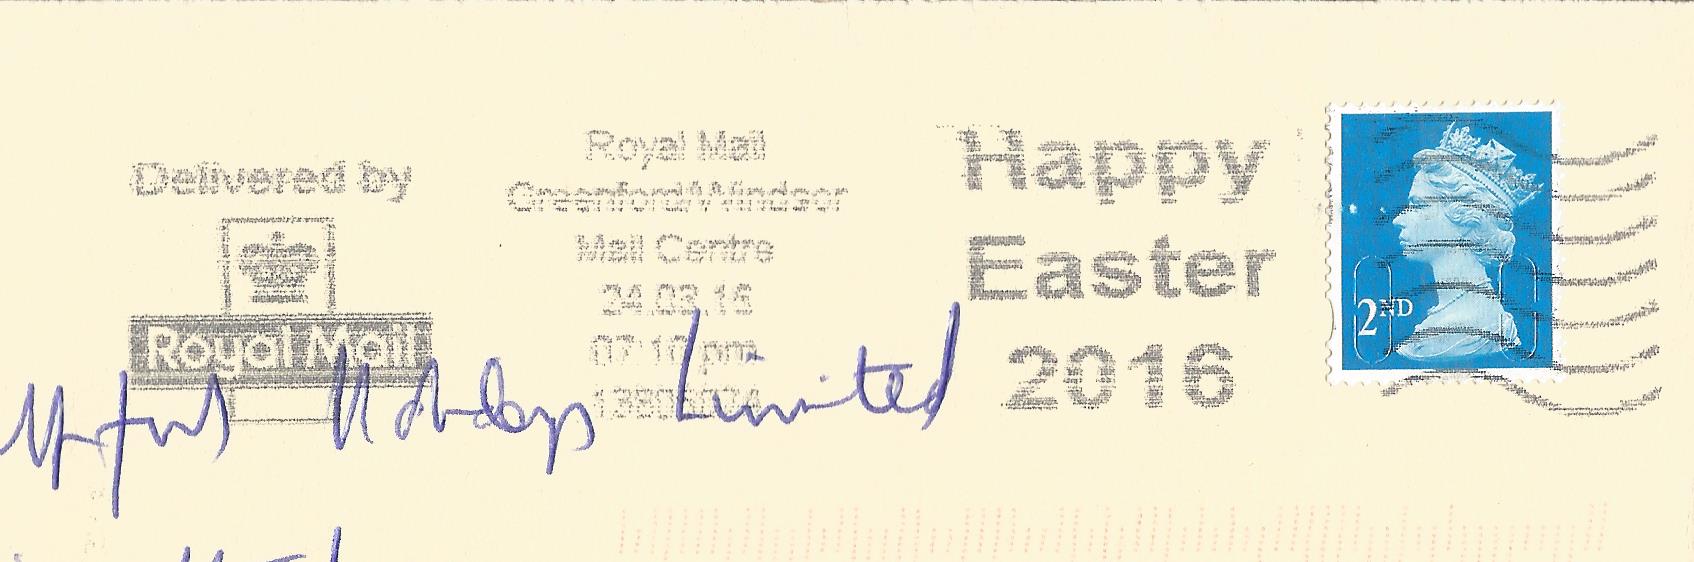 Delivered by
Royal Mail
Royal Mail
Greenford/Windsor
Mail Centre
24.03.16
07:10 pm
Happy
Easter
2016
2ND
Holidays Limited